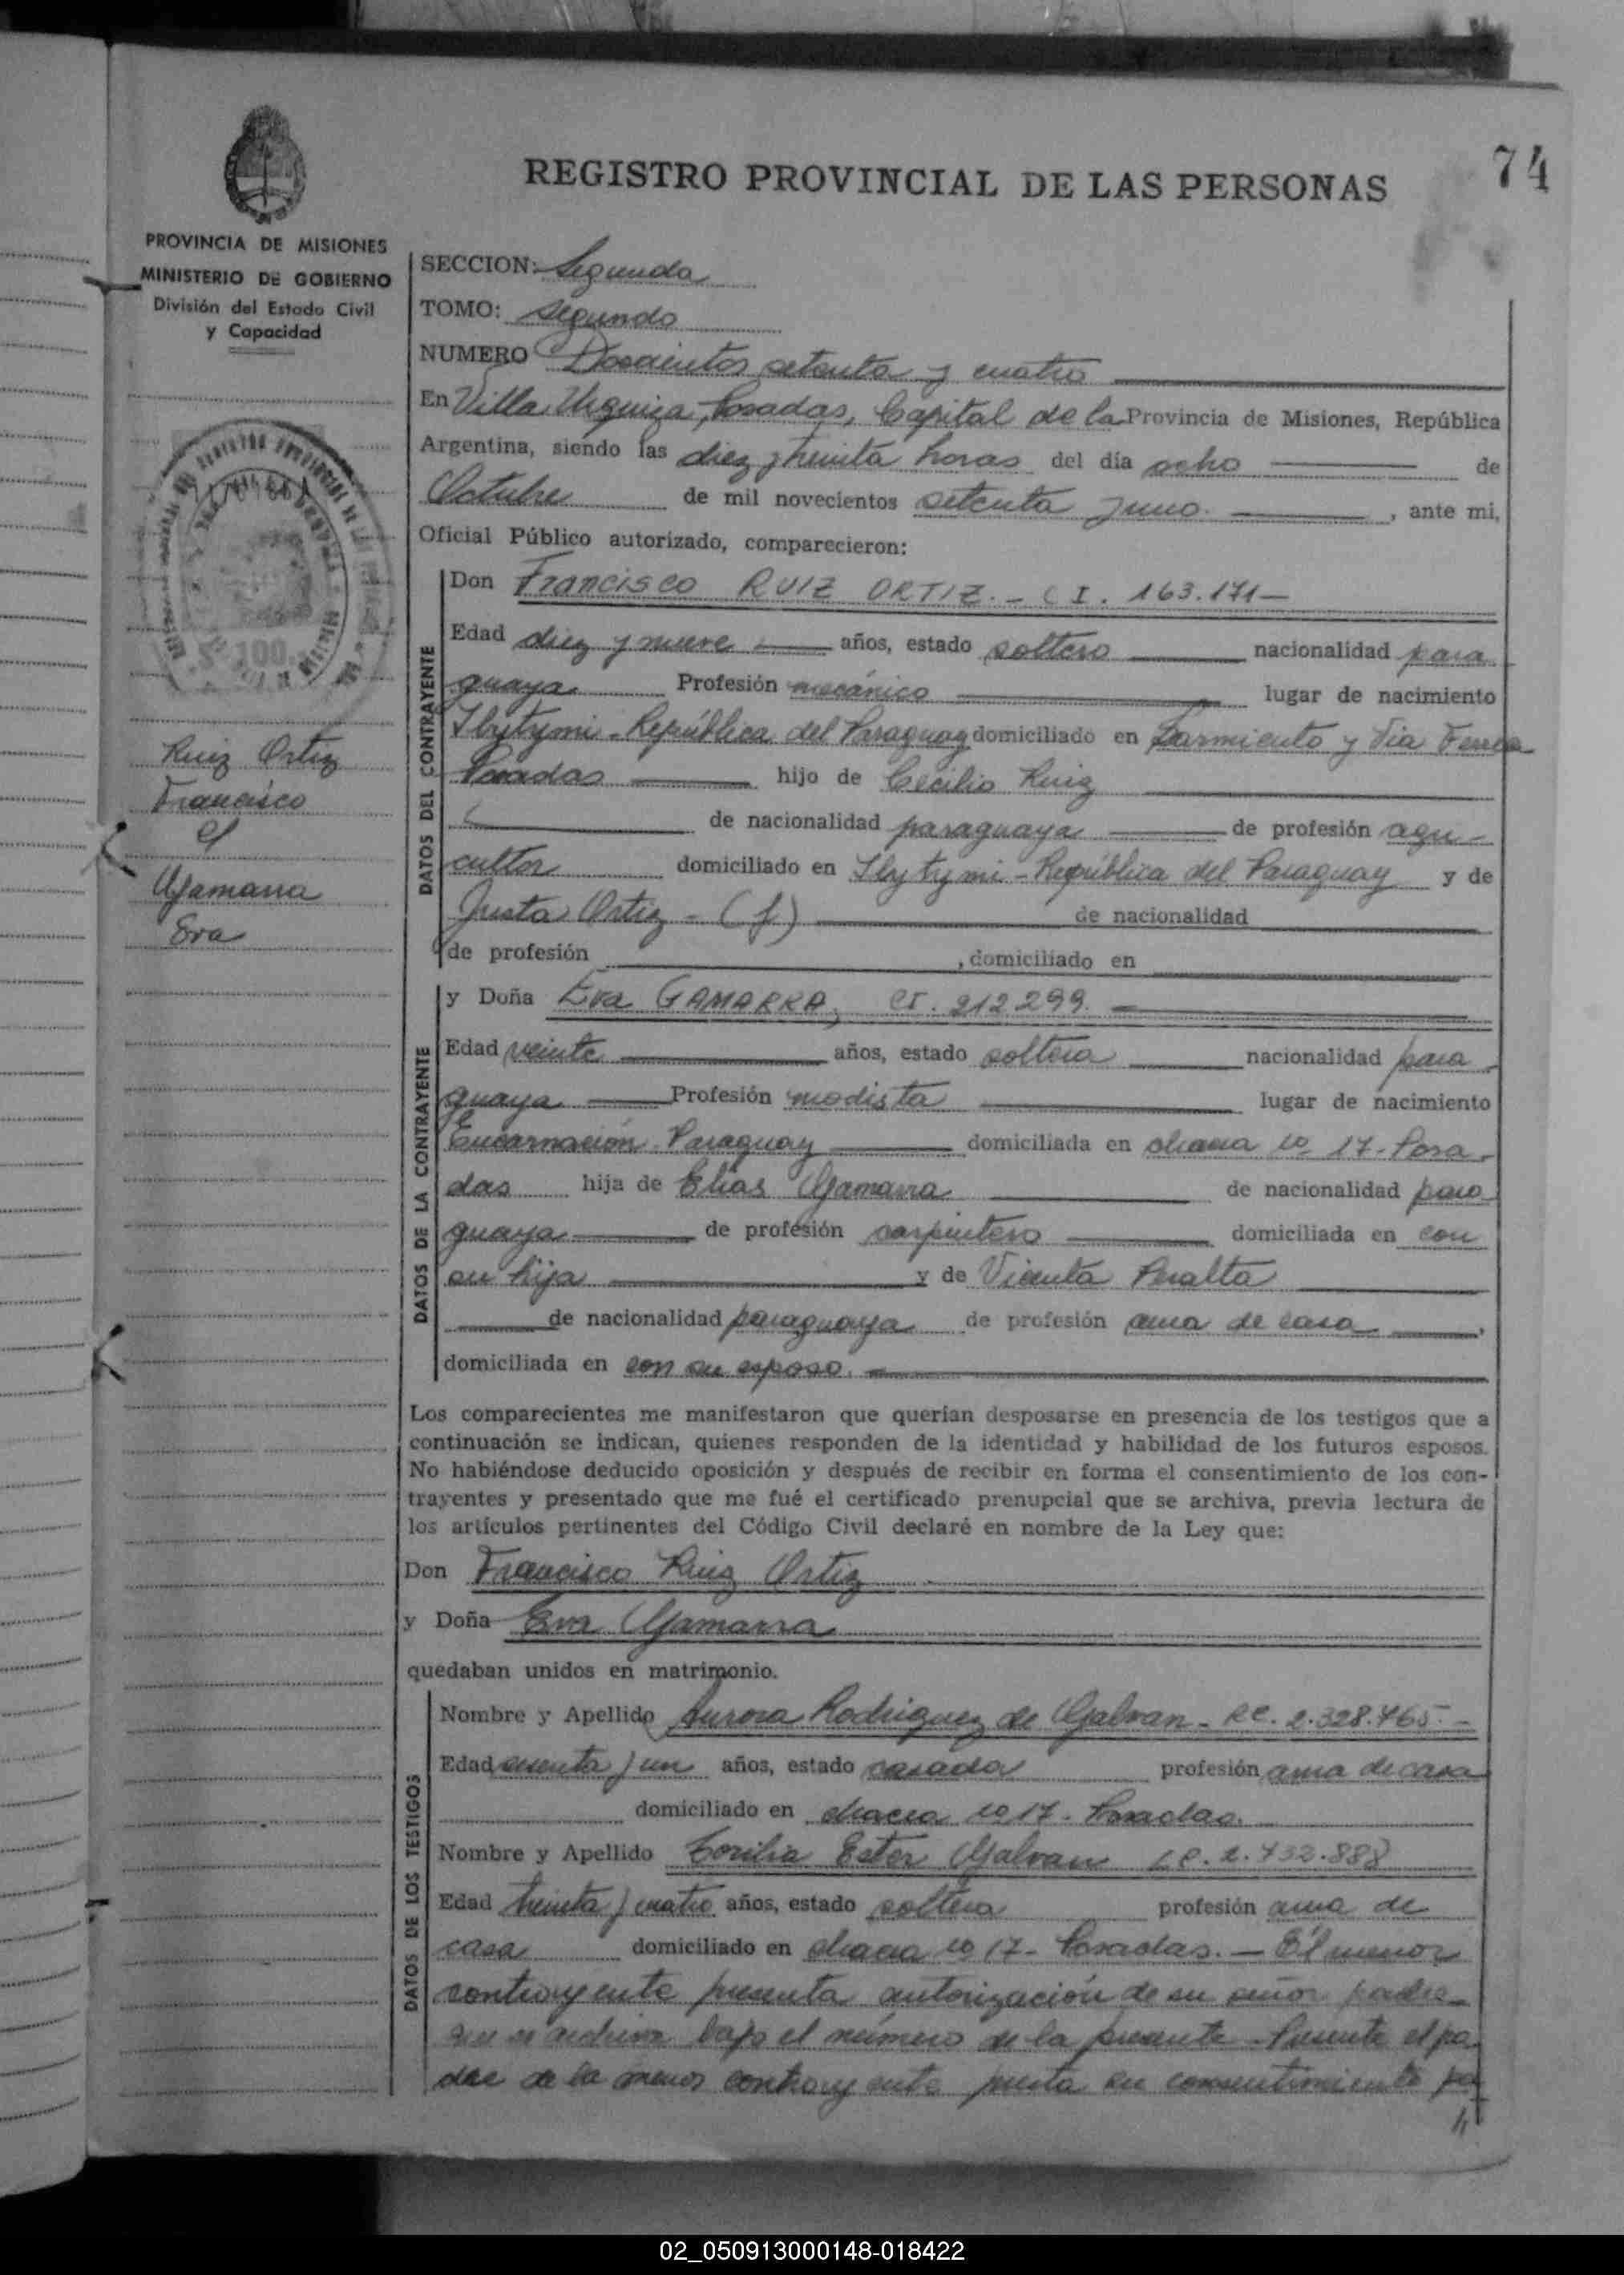 74
REGISTRO PROVINCIAL DE LAS PERSONAS
PROVINCIA DE MISIONES
MINISTERIO DE GOBIERNO
División del Estado Civil
y Capacidad
SECCION: Segunda
TOMO: segundo
NUMERO Doscientos setenta y cuatro
En Villa Urquiza, Posadas, Capital de la Provincia de Misiones, República
Argentina, siendo las diez y treinta horas del día ocho de
Octubre de mil novecientos setenta y uno. , ante mi,
Oficial Público autorizado, comparecieron:
DATOS DEL CONTRAYENTE
Don Francisco RUIZ ORTIZ.- C I. 163.171-
Edad diez y nueve años, estado soltero nacionalidad para
guaya Profesión mecánico lugar de nacimiento
Ybytymi - República del Paraguay domiciliado en Sarmiento y Via Ferrea
Posadas hijo de Cecilio Ruiz
de nacionalidad paraguaya de profesión agri-
cultor domiciliado en Ybytymi - República del Paraguay y de
Justa Ortiz - (f) de nacionalidad
de profesión , domiciliado en
Ruiz Ortiz
Francisco
c/
Gamarra
Eva
DATOS DE LA CONTRAYENTE
y Doña Eva GAMARRA, CI. 212.299.
Edad veinte años, estado soltera nacionalidad para
guaya Profesión modista lugar de nacimiento
Encarnación - Paraguay domiciliada en chacra 17 - Posa-
das hija de Elias Gamarra de nacionalidad para
guaya de profesión carpintero domiciliada en con
su hija y de Vicenta Peralta
de nacionalidad paraguaya de profesión ama de casa ,
domiciliada en con su esposo.
Los comparecientes me manifestaron que querían desposarse en presencia de los testigos que a
continuación se indican, quienes responden de la identidad y habilidad de los futuros esposos.
No habiéndose deducido oposición y después de recibir en forma el consentimiento de los con-
trayentes y presentado que me fué el certificado prenupcial que se archiva, previa lectura de
los artículos pertinentes del Código Civil declaré en nombre de la Ley que:
Don Francisco Ruiz Ortiz
y Doña Eva Gamarra
quedaban unidos en matrimonio.
DATOS DE LOS TESTIGOS
Nombre y Apellido Aurora Rodriguez de Galvan - 2.328.465.-
Edad y un años, estado casada profesión ama de casa
domiciliado en chacra 17 - Posadas.
Nombre y Apellido Ester Galvan 2.732.888
Edad treinta y cuatro años, estado soltera profesión ama de
casa domiciliado en chacra 17 - Posadas. - El menor
contrayente presenta autorización de su señor padre
que se archiva bajo el número de la presente - Presente el pa-
dre de la menor contrayente presta su consentimiento pa
02_050913000148-018422